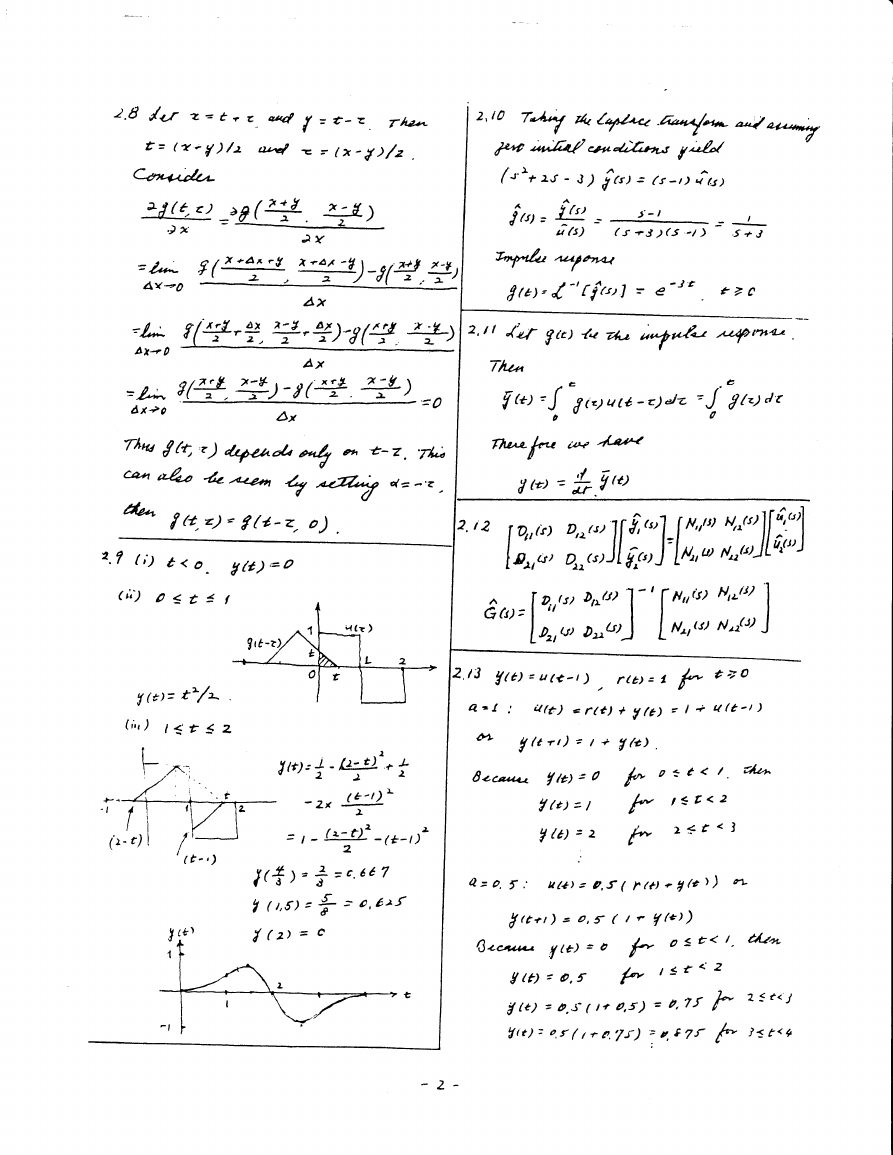 2.8 Let x = t + τ and y = t - τ. Then
t = (x - y)/2 and τ = (x - y)/2.
Consider
∂g(t, τ)/∂x = ∂g((x+y)/2, (x-y)/2)/∂x
= lim Δx→0 [g((x+Δx+y)/2, (x+Δx-y)/2) - g((x+y)/2, (x-y)/2)]/Δx
= lim Δx→0 [g((x+y)/2 + Δx/2, (x-y)/2 + Δx/2) - g((x+y)/2, (x-y)/2)]/Δx
= lim Δx→0 [g((x+y)/2, (x-y)/2) - g((x+y)/2, (x-y)/2)]/Δx = 0
Thus g(t, τ) depends only on t-τ. This
can also be seem by setting α = -τ,
then g(t, τ) = g(t-τ, 0).
2.9 (i) t < 0, y(t) = 0
(ii) 0 ≤ t ≤ 1
g(t-τ) 1 u(τ)
t
0 t 1 2
y(t) = t²/2.
(iii) 1 ≤ t ≤ 2
-1 1 t 2
(2-t)
(t-1)
y(t) = 1/2 - (2-t)²/2 + 1/2
- 2× (t-1)²/2
= 1 - (2-t)²/2 - (t-1)²
y(4/3) = 2/3 = 0.667
y(1.5) = 5/8 = 0.625
y(2) = 0
y(t)
1
1 2 t
-1
2.10 Taking the Laplace transform and assuming
zero initial conditions yield
(s² + 2s - 3) ŷ(s) = (s-1) û(s)
ĝ(s) = ŷ(s)/û(s) = (s-1)/((s+3)(s-1)) = 1/(s+3)
Impulse response
g(t) = L⁻¹[ĝ(s)] = e^(-3t), t ≥ 0
2.11 Let g(t) be the impulse response.
Then
ȳ(t) = ∫₀ᵗ g(τ)u(t-τ)dτ = ∫₀ᵗ g(τ)dτ
Therefore we have
g(t) = d/dt ȳ(t)
2.12 [D₁₁(s) D₁₂(s)] [ŷ₁(s)] = [N₁₁(s) N₁₂(s)] [û₁(s)]
[D₂₁(s) D₂₂(s)] [ŷ₂(s)] [N₂₁(s) N₂₂(s)] [û₂(s)]
Ĝ(s) = [D₁₁(s) D₁₂(s)]⁻¹ [N₁₁(s) N₁₂(s)]
[D₂₁(s) D₂₂(s)] [N₂₁(s) N₂₂(s)]
2.13 y(t) = u(t-1), r(t) = 1 for t ≥ 0
a = 1: u(t) = r(t) + y(t) = 1 + u(t-1)
or y(t+1) = 1 + y(t).
Because y(t) = 0 for 0 ≤ t < 1, then
y(t) = 1 for 1 ≤ t < 2
y(t) = 2 for 2 ≤ t < 3
⋮
a = 0.5: u(t) = 0.5(r(t) + y(t)) or
y(t+1) = 0.5(1 + y(t))
Because y(t) = 0 for 0 ≤ t < 1, then
y(t) = 0.5 for 1 ≤ t < 2
y(t) = 0.5(1 + 0.5) = 0.75 for 2 ≤ t < 3
y(t) = 0.5(1 + 0.75) = 0.875 for 3 ≤ t < 4
⋮
- 2 -